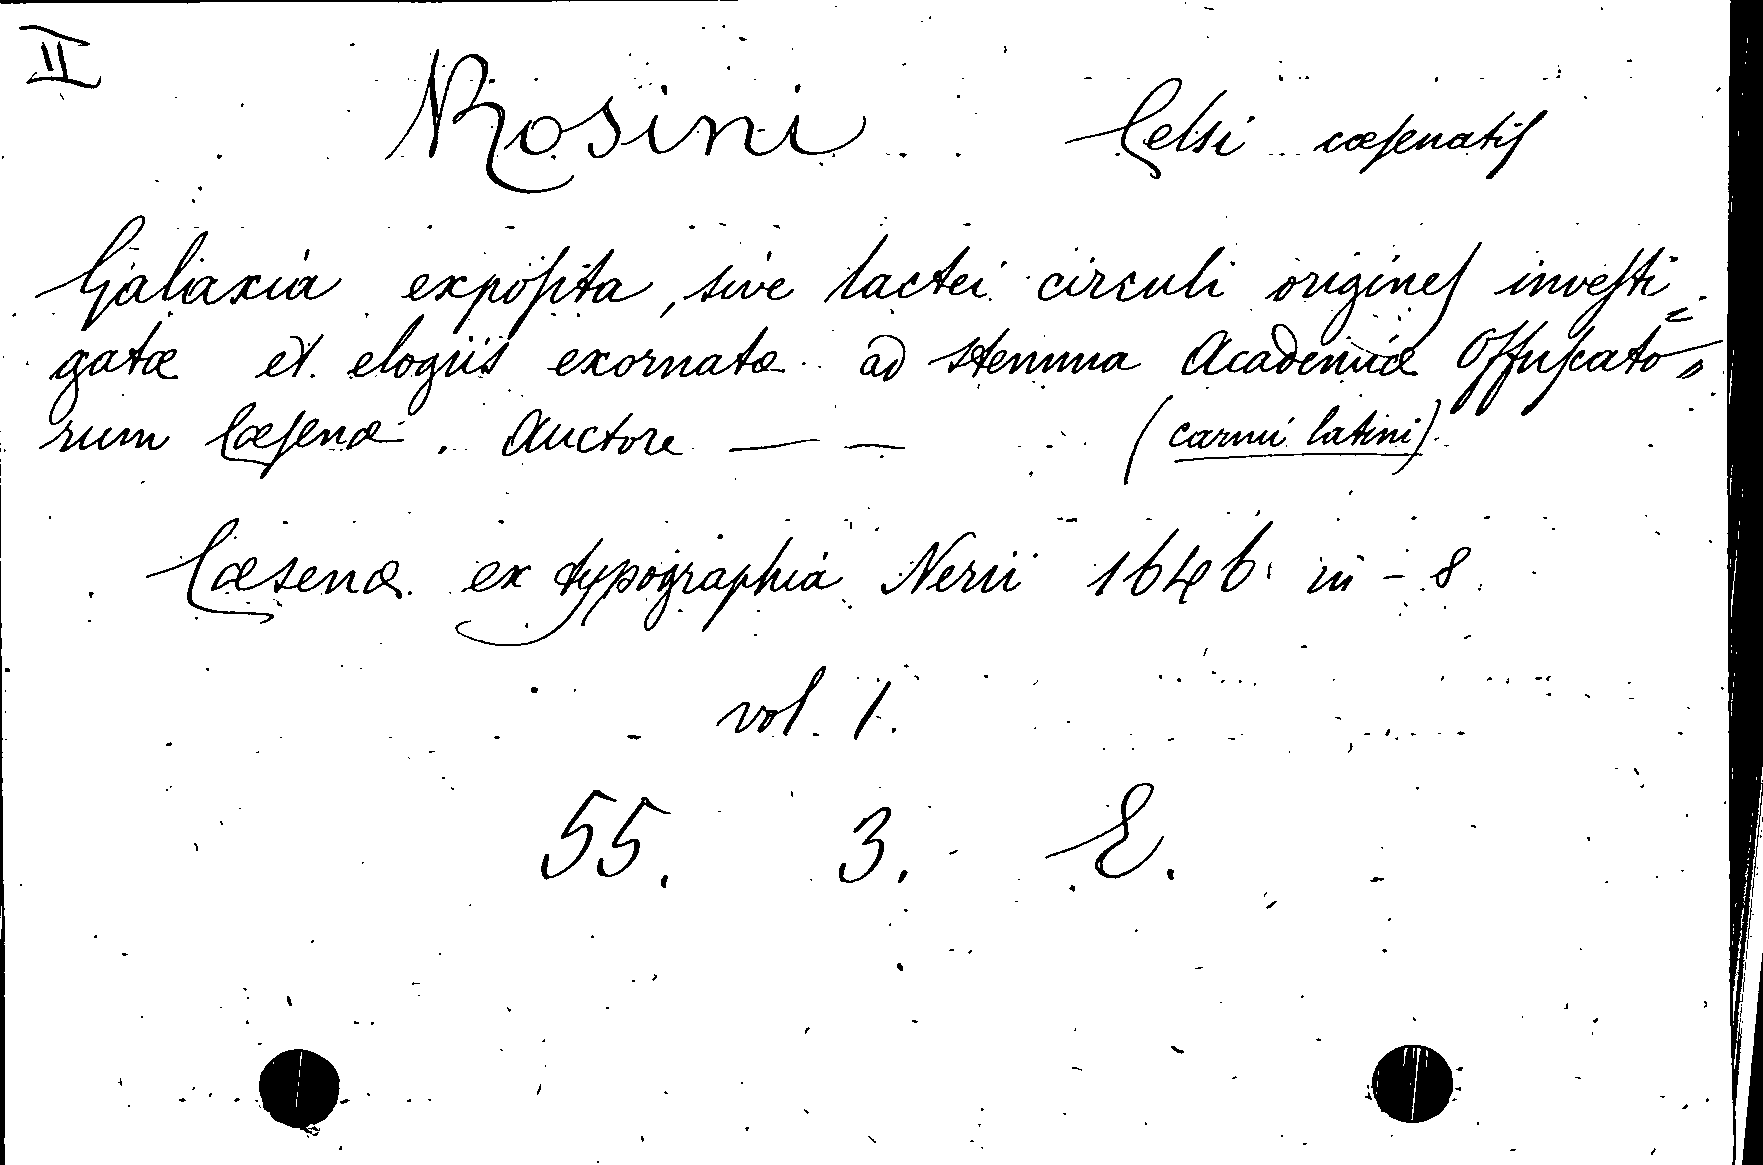 II
Rosini Celsi cæſenatiſ
Galaxia expoſita, sive lactei circuli origineſ inveſti=
gatæ et elogiis exornatæ ad stemma Academiæ Offuſcato=
rum Cæſenæ. Auctore — — (carmi latini)
Cæsenæ ex typographia Nerii 1646. in-8
vol. 1.
55. 3. E.